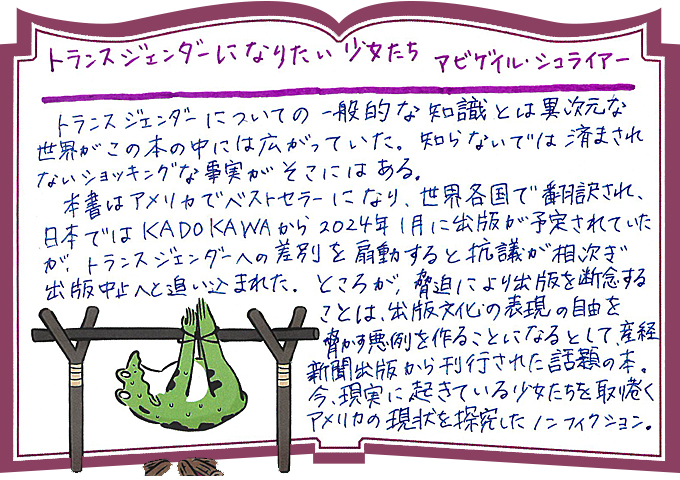 トランスジェンダーになりたい少女たち アビゲイル・シュライアー
トランスジェンダーについての一般的な知識とは異次元な
世界がこの本の中には広がっていた。知らないでは済まされ
ないショッキングな事実がそこにはある。
本書はアメリカでベストセラーになり、世界各国で翻訳され、
日本ではKADOKAWAから2024年1月に出版が予定されていた
が、トランスジェンダーへの差別を扇動すると抗議が相次ぎ
出版中止へと追い込まれた。ところが、脅迫により出版を断念する
ことは、出版文化の表現の自由を
脅かす悪例を作ることになるとして、産経
新聞出版から刊行された話題の本。
今、現実に起きている少女たちを取り巻く
アメリカの現状を探究したノンフィクション。